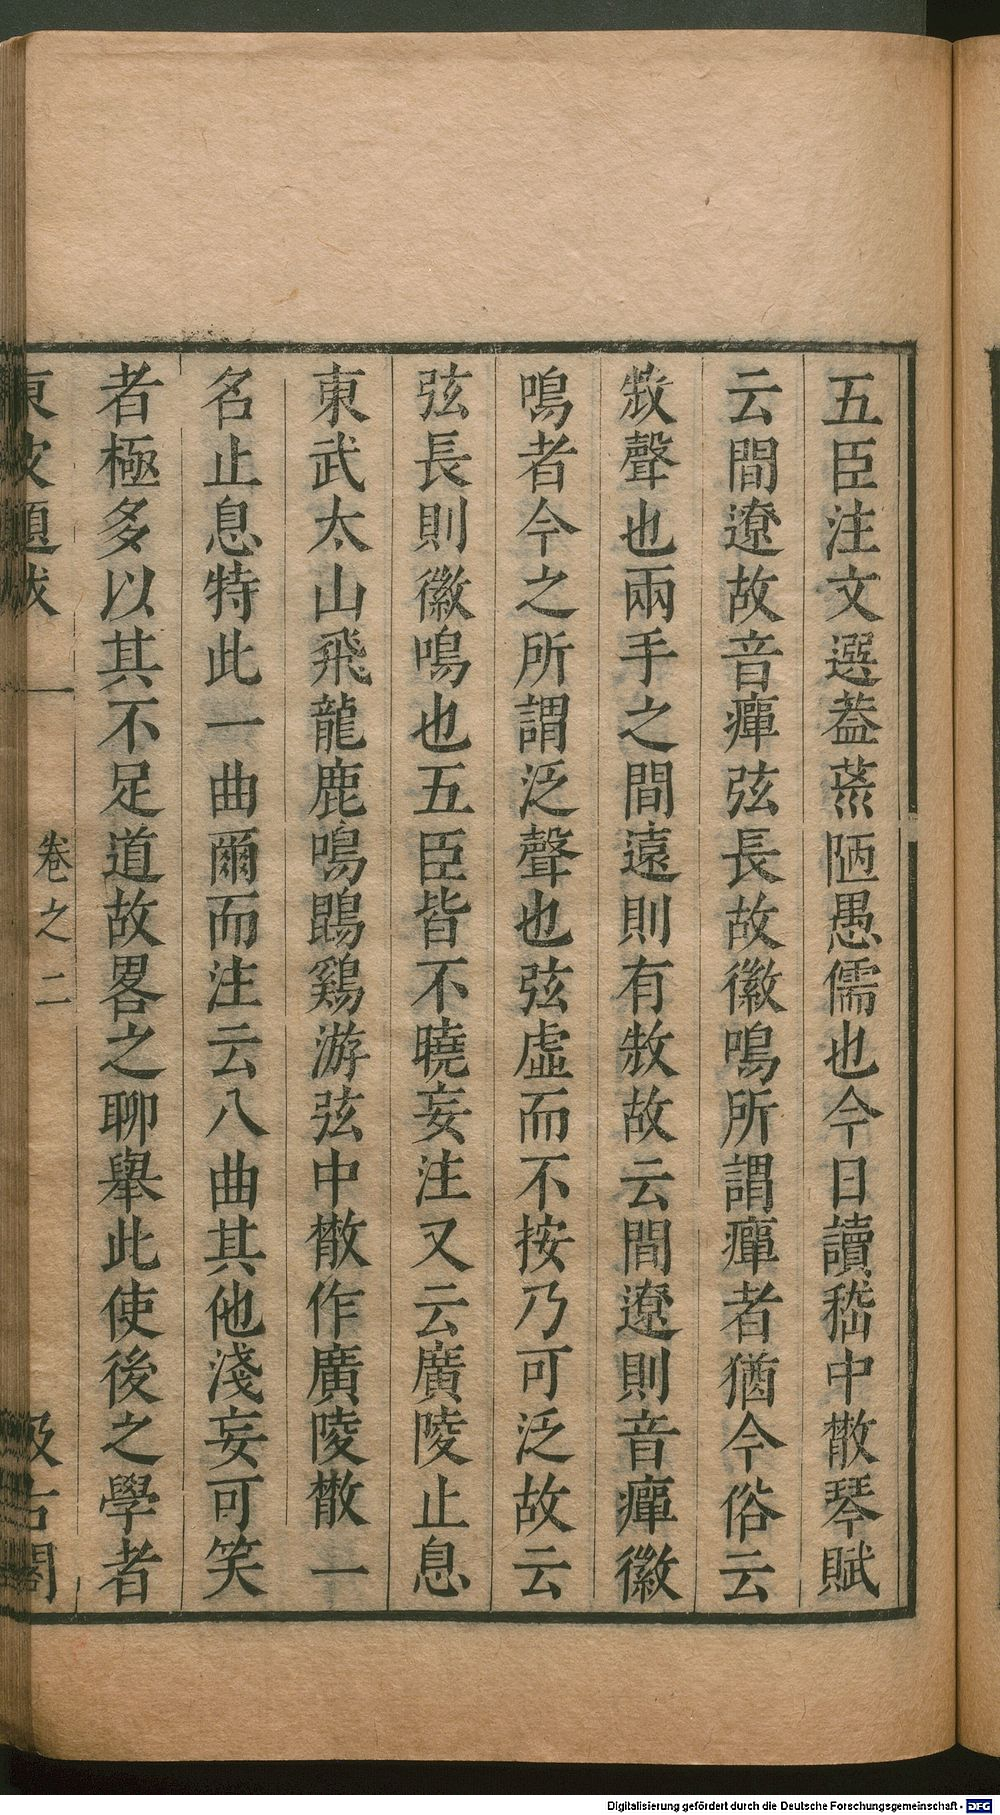 五臣注文選葢荒陋愚儒也今日讀嵇中散琴賦
云間遼故音痺弦長故徽鳴所謂痺者猶今俗云
㪇聲也兩手之間遠則有㪇故云間遼則音痺徽
鳴者今之所謂泛聲也弦虛而不按乃可泛故云
弦長則徽鳴也五臣皆不曉妄注又云廣陵止息
東武太山飛龍鹿鳴鵾鷄游弦中散作廣陵散一
名止息特此一曲爾而注云八曲其他淺妄可笑
者極多以其不足道故畧之聊舉此使後之學者
東坡題跋
卷之二
汲古閣
Digitalisierung gefördert durch die Deutsche Forschungsgemeinschaft - DFG